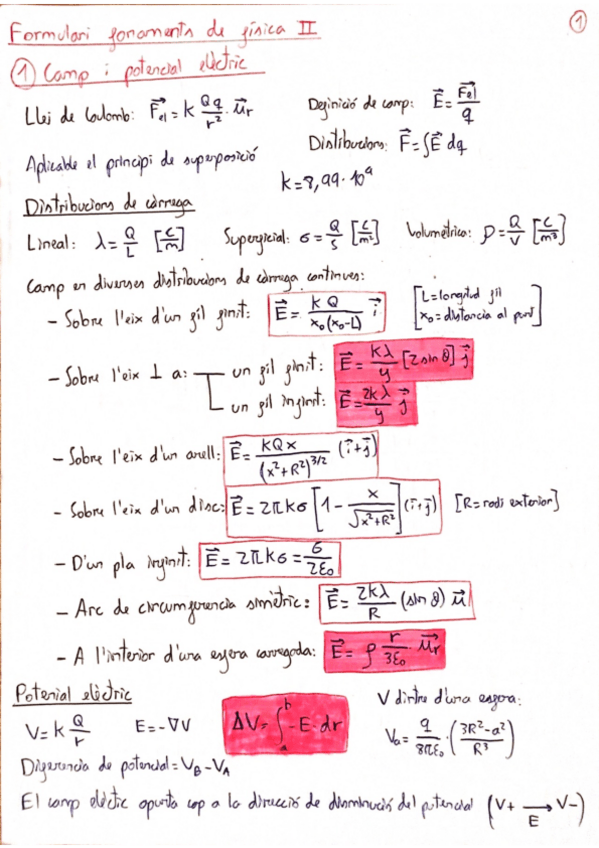 Formulari fonaments de física II
1
1 Camp i potencial elèctric
Llei de Coulomb: F⃗el = k Qq/r² · u⃗r
Definició de camp: E⃗ = F⃗el/q
Distribucions: F⃗ = ∫E⃗ dq
Aplicable el principi de superposició
k = 8,99 · 10⁹
Distribucions de càrrega
Lineal: λ = Q/L [C/m]
Superficial: σ = Q/S [C/m²]
Volumétrica: ρ = Q/V [C/m³]
Camp en diverses distribucions de càrrega contínues:
- Sobre l'eix d'un fil finit: E⃗ = kQ/(x₀(x₀-L)) i⃗
[L = longitud fil
x₀ = distancia al punt]
- Sobre l'eix ⊥ a:
un fil finit: E⃗ = kλ/y [2 sin θ] j⃗
un fil infinit: E⃗ = 2kλ/y j⃗
- Sobre l'eix d'un anell: E⃗ = kQx/(x²+R²)^3/2 (i⃗+j⃗)
- Sobre l'eix d'un disc: E⃗ = 2πkσ [1 - x/√(x²+R²)] (i⃗+j⃗) [R = radi exterior]
- D'un pla infinit: E⃗ = 2πkσ = σ/2ε₀
- Arc de circumferencia simètric: E⃗ = 2kλ/R (sin θ) u⃗
- A l'interior d'una esfera carregada: E⃗ = ρ r/3ε₀ · u⃗r
Potenial elèctric
V = k Q/r
E = -∇V
ΔV = ∫ₐᵇ -E · dr
V dintre d'una esfera:
Va = q/8πε₀ · (3R²-a²/R³)
Diferencia de potencial = VB - VA
El camp elèctric apunta cap a la direcció de disminució del potencial (V+ ⟶ V-)
E